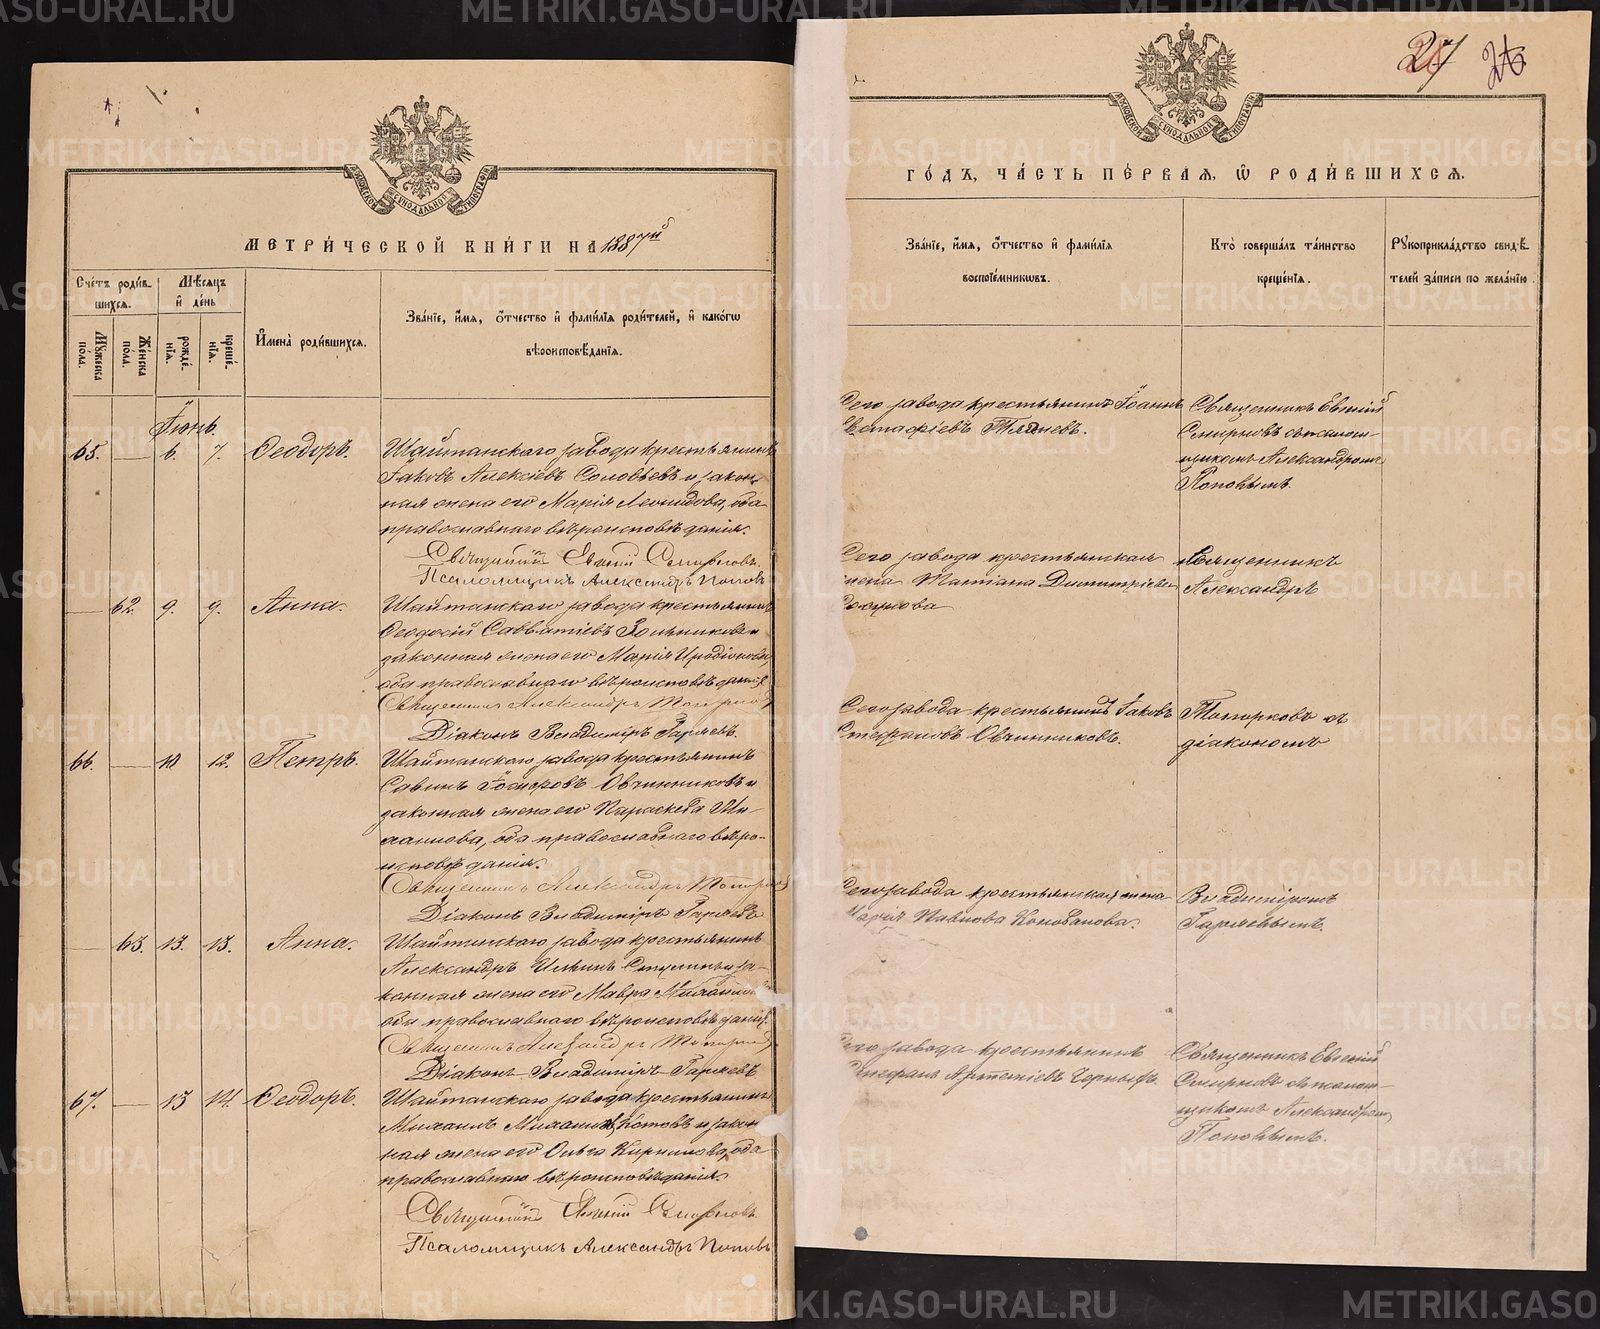 МЕТРИ́ЧЕСКОЙ КНИ́ГИ НА 1887й
Сче́тъ роди́в-
шихся.
Мѣ́сяцъ
и҆ де́нь
Му́жеска
по́ла.
Же́нска
по́ла.
рожде́-
нїя.
креще́-
нїя.
И҆мена̀ роди́вшихся.
Зва́нїе, и҆́мя, ѻ҆́тчество и҆ фами́лїя роди́телей, и҆ како́гѡ
вѣроисповѣ́данїя.
Іюнь
65. — 6. 7. Ѳеодоръ. Шайтанскаго завода крестьянинъ
Іаковъ Алексіевъ Соловьевъ и закон-
ная жена его Марія Леонидова, оба
православнаго вѣроисповѣданія.
Священникъ Евгеній Смирновъ.
Псаломщикъ Александръ Поповъ
— 62. 9. 9. Анна. Шайтанскаго завода крестьянинъ
Ѳеодосій Савватіевъ и
законная жена его Марія Иродіонова,
оба православнаго вѣроисповѣданія
Священникъ Александръ Топорковъ
Діаконъ Владиміръ Гаряевъ.
66. — 11 12. Петръ. Шайтанскаго завода крестьянинъ
Савинъ Овчинниковъ и
законная жена его Параскева Ми-
хаилова, оба православнаго вѣро-
исповѣданія.
Священникъ Александръ Топорковъ
Діаконъ Владиміръ Гаряевъ
— 63. 13. 13. Анна. Шайтанскаго завода крестьянинъ
Александръ Ильинъ и за-
конная жена его Мавра
оба православнаго вѣроисповѣданія.
Священникъ Александръ Топорковъ
Діаконъ Владиміръ Гаряевъ
67. — 13 14. Ѳеодоръ. Шайтанскаго завода крестьянинъ
Михаилъ Михаиловъ и закон-
ная жена его Ольга Кирилова, оба
православнаго вѣроисповѣданія.
Священникъ Евгеній Смирновъ.
Псаломщикъ Александръ Поповъ
27 26
МОСКОВСКОЙ СѴНОДАЛЬНОЙ ТИПОГРАФІИ
ГО́ДЪ, ЧА́СТЬ ПЕ́РВАЯ, Ѡ҆ РОДИ́ВШИХСЯ.
Зва́нїе, и҆́мя, ѻ҆́тчество и҆ фами́лїя
воспрїе́мникѡвъ.
Кто̀ соверша́лъ та́инство
креще́нїя.
Рꙋкоприкла́дство свидѣ́-
телей за́писи по жела́нїю.
Сего завода крестьянинъ Іоаннъ
Евстафіевъ
Священникъ Евгеній
Смирновъ съ псалом-
щикомъ Александромъ
Поповымъ.
Сего завода крестьянская
жена Татіана Димитріева
Священникъ
Александръ
Сего завода крестьянинъ Іаковъ
Стефановъ Овчинниковъ.
Топорковъ съ
діакономъ
Сего завода крестьянская жена
Марія Павлова Коновалова.
Владиміромъ
Гаряевымъ.
Сего завода крестьянинъ
Стефанъ Артеміевъ Черныхъ.
Священникъ Евгеній
Смирновъ съ псалом-
щикомъ Александромъ
Поповымъ.
METRIKI.GASO-URAL.RU